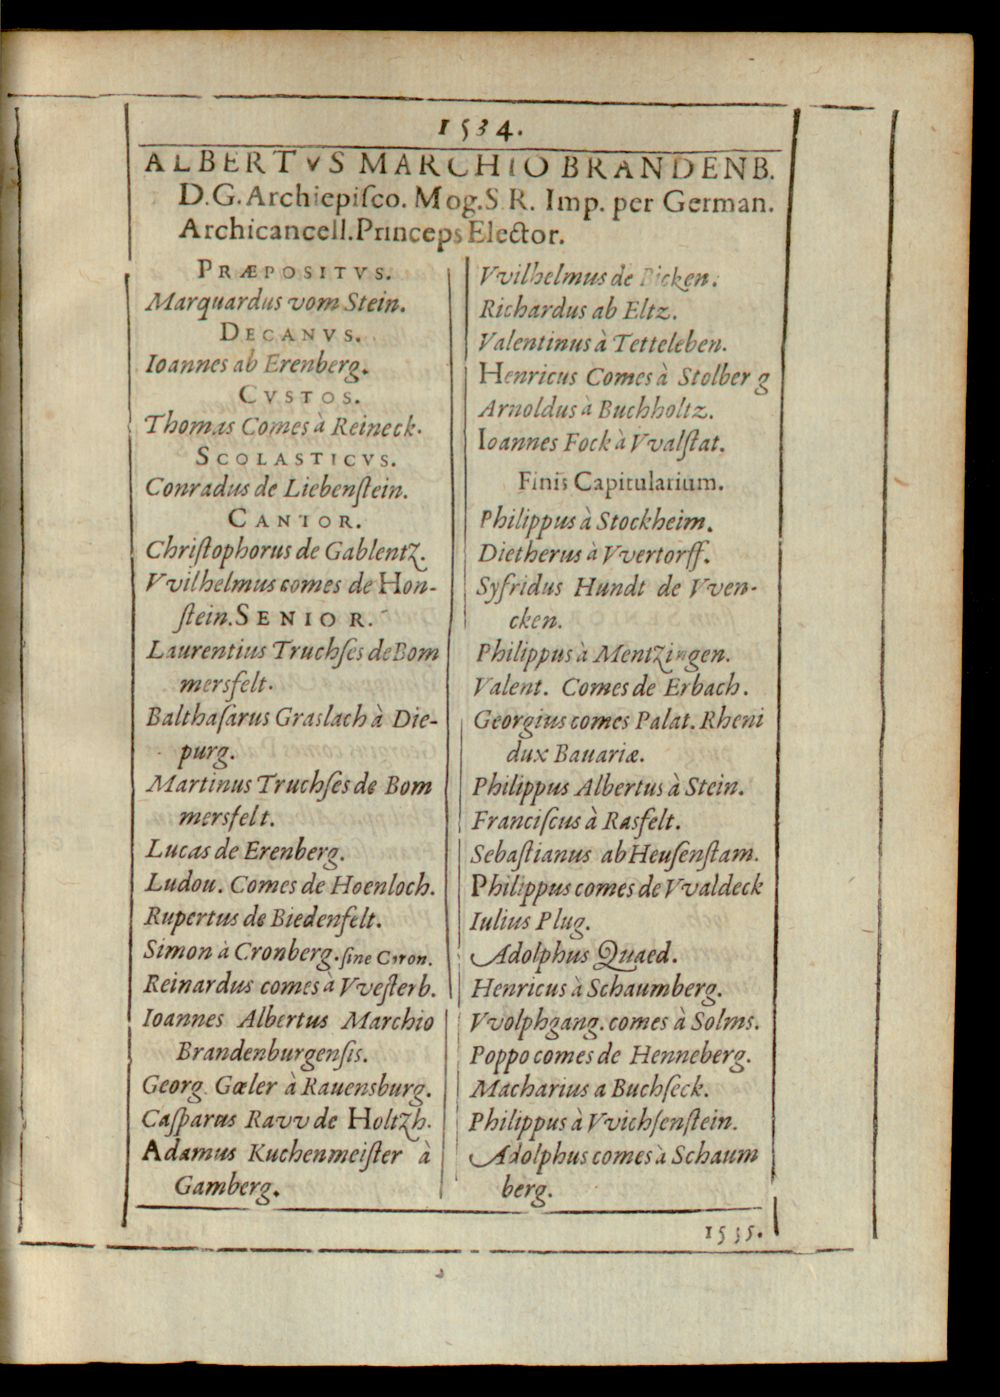 1534.
ALBERTVS MARCHIO BRANDENB.
D.G. Archiepiſco. Mog. S. R. Imp. per German.
Archicancell. Princeps Elector.
PRÆPOSITVS.
Marquardus vom Stein.
DECANVS.
Ioannes ab Erenberg.
CVSTOS.
Thomas Comes à Reineck.
SCOLASTICVS.
Conradus de Liebenſtein.
CANTOR.
Chriſtophorus de Gablentz.
Vvilhelmus comes de Hon-
ſtein. SENIOR.
Laurentius Truchſes de Bom
mersfelt.
Balthaſarus Graslach à Die-
purg.
Martinus Truchſes de Bom
mersfelt.
Lucas de Erenberg.
Ludou. Comes de Hoenloch.
Rupertus de Biedenfelt.
Simon à Cronberg. ſine Cron.
Reinardus comes à Vveſterb.
Ioannes Albertus Marchio
Brandenburgenſis.
Georg. Gœler à Rauensburg.
Caſparus Ravv de Holtzh.
Adamus Kuchenmeiſter à
Gamberg.
Vvilhelmus de Bicken.
Richardus ab Eltz.
Valentinus à Tetteleben.
Henricus Comes à Stolberg
Arnoldus à Buchholtz.
Ioannes Fock à Vvalſtat.
Finis Capitularium.
Philippus à Stockheim.
Dietherus à Vvertorff.
Syfridus Hundt de Vven-
cken.
Philippus à Mentzingen.
Valent. Comes de Erbach.
Georgius comes Palat. Rheni
dux Bauariæ.
Philippus Albertus à Stein.
Franciſcus à Rasfelt.
Sebaſtianus ab Heuſenſtam.
Philippus comes de Vvaldeck
Iulius Plug.
Adolphus Quaed.
Henricus à Schaumberg.
Vvolphgang. comes à Solms.
Poppo comes de Henneberg.
Macharius a Buchſeck.
Philippus à Vvichſenſtein.
Adolphus comes à Schaum
berg.
1535.